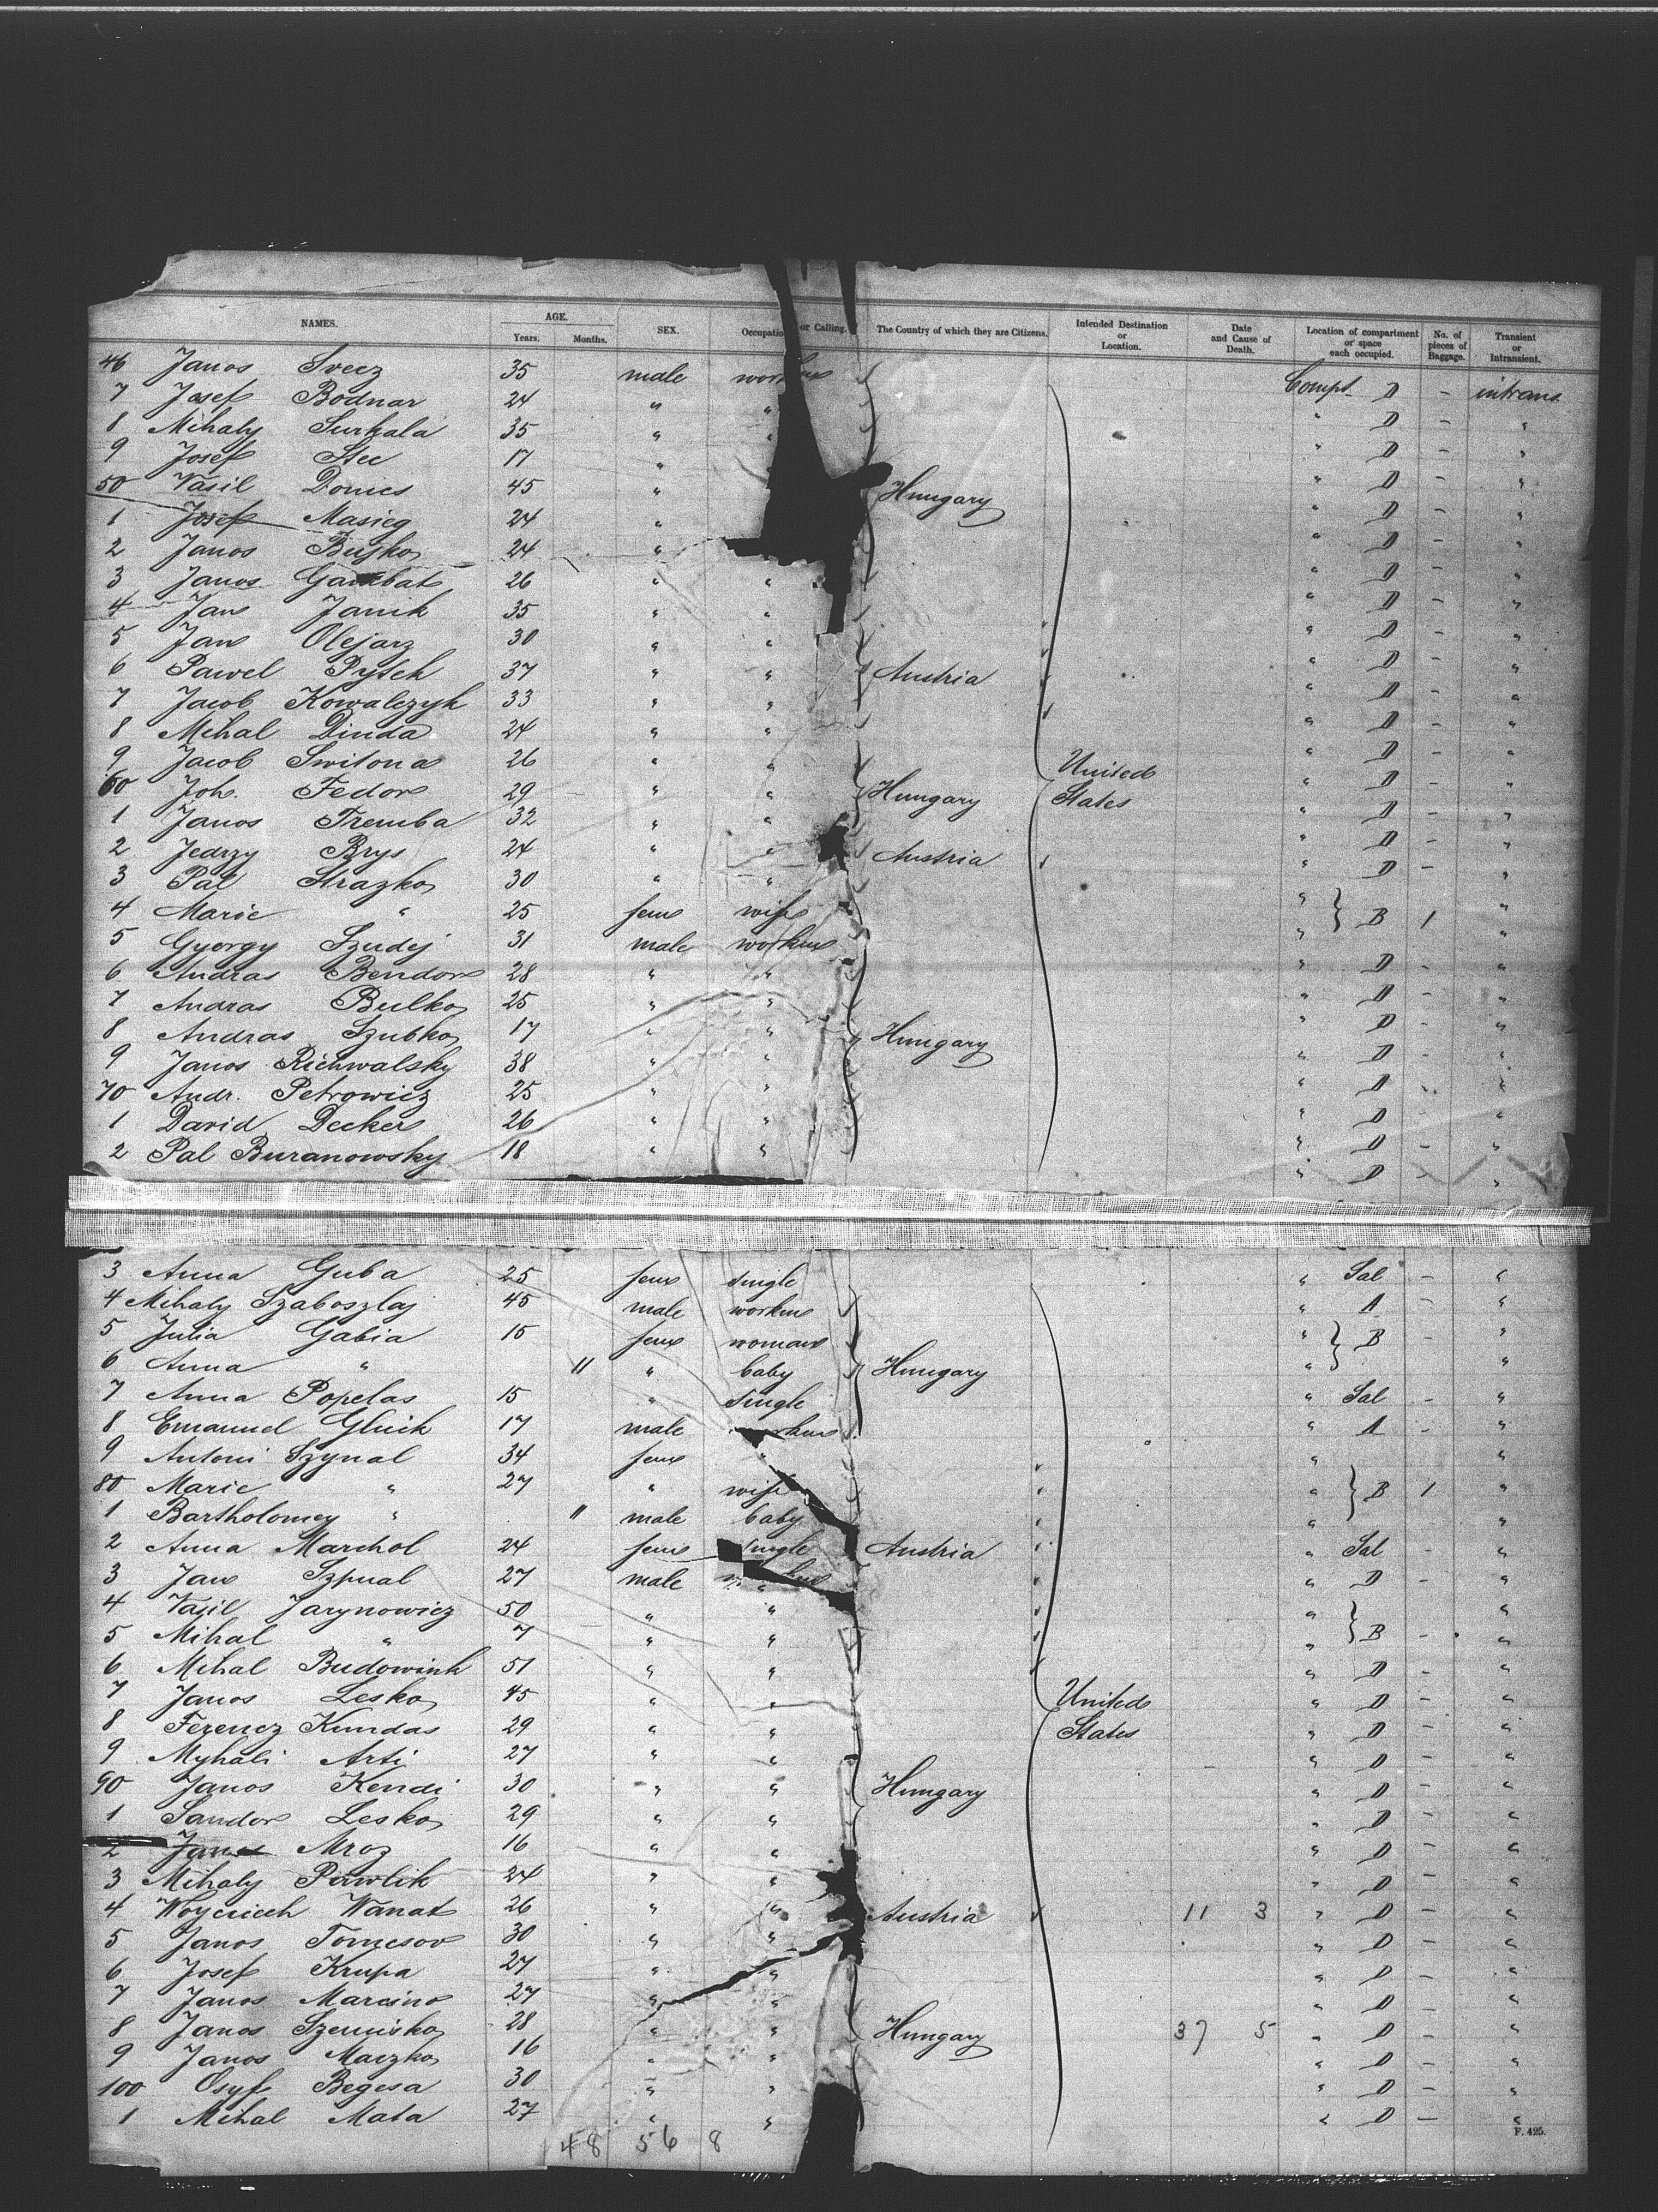 NAMES. AGE. Years. Months. SEX. Occupation or Calling. The Country of which they are Citizens. Intended Destination or Location. Date and Cause of Death. Location of compartment or space each occupied. No. of pieces of Baggage. Transient or Intransient.
46 Janos Svecz 35 male workm Compt D - intrans
7 Josef Bodnar 24 " " " D - "
8 Mihaly Surkala 35 " " " D - "
9 Josef Stec 17 " " D - "
50 Vasil Donics 45 " Hungary " D - "
1 Josef Masieg 24 " " D - "
2 Janos Busko 24 " " D - "
3 Janos Gambat 26 " " " D - "
4 Jan Janik 35 " " " D - "
5 Jan Olejarz 30 " " " D - "
6 Pawel Pytek 37 " " Austria " D - "
7 Jacob Kowalczyk 33 " " " D - "
8 Mihal Dinda 24 " " " D - "
9 Jacob Switon 26 " " United " D - "
60 Joh. Fedor 29 " " Hungary States " D - "
1 Janos Tremba 32 " " " D - "
2 Jedrzy Brys 24 " " Austria " D - "
3 Pal Strazko 30 " " " D - "
4 Marie " 25 fem wife " B 1 "
5 Gyorgy Szudej 31 male workm " "
6 Andras Bendor 28 " " " D - "
7 Andras Bulko 25 " " " D - "
8 Andras Szubko 17 " " Hungary " D - "
9 Janos Richwalsky 38 " " " D - "
70 Andr. Petrowicz 25 " " " D - "
1 David Decker 26 " " " D - "
2 Pal Buranowsky 18 " " " D - "
" D "
3 Anna Guba 25 fem single " Sal - "
4 Mihaly Szaboszlaj 45 male workm " A - "
5 Julia Gabia 15 fem woman " B - "
6 Anna " 11 " baby Hungary " "
7 Anna Popelas 15 " single " Sal - "
8 Emanuel Gluck 17 male workm " A - "
9 Antoni Szynal 34 fem " "
80 Marie " 27 " wife " B 1 "
1 Bartholomey " 11 male baby " "
2 Anna Marchol 24 fem single Austria " Sal - "
3 Jan Szpual 27 male " D - "
4 Vasil Jarynowicz 50 " " " "
5 Mihal " 7 " " " B - "
6 Mihal Budowink 51 " " " D - "
7 Janos Lesko 45 " " United " D - "
8 Ferencz Kundas 29 " " States " D - "
9 Myhali Arti 27 " " " D - "
90 Janos Kendi 30 " " Hungary " D - "
1 Sandor Lesko 29 " " " D - "
2 Jan Mroz 16 " " " D - "
3 Mihaly Pawlik 24 " " " D - "
4 Woyciech Wanat 26 " " Austria 11 3 " D - "
5 Janos Tomcsov 30 " " " D - "
6 Josef Krupa 27 " " " D - "
7 Janos Marcino 27 " " " D - "
8 Janos Szemisko 28 " " Hungary 37 5 " D - "
9 Janos Maczko 16 " " " D - "
100 Osyf Begesa 30 " " " D - "
1 Mihal Mata 27 " " " D - "
48 56 8
F. 425.